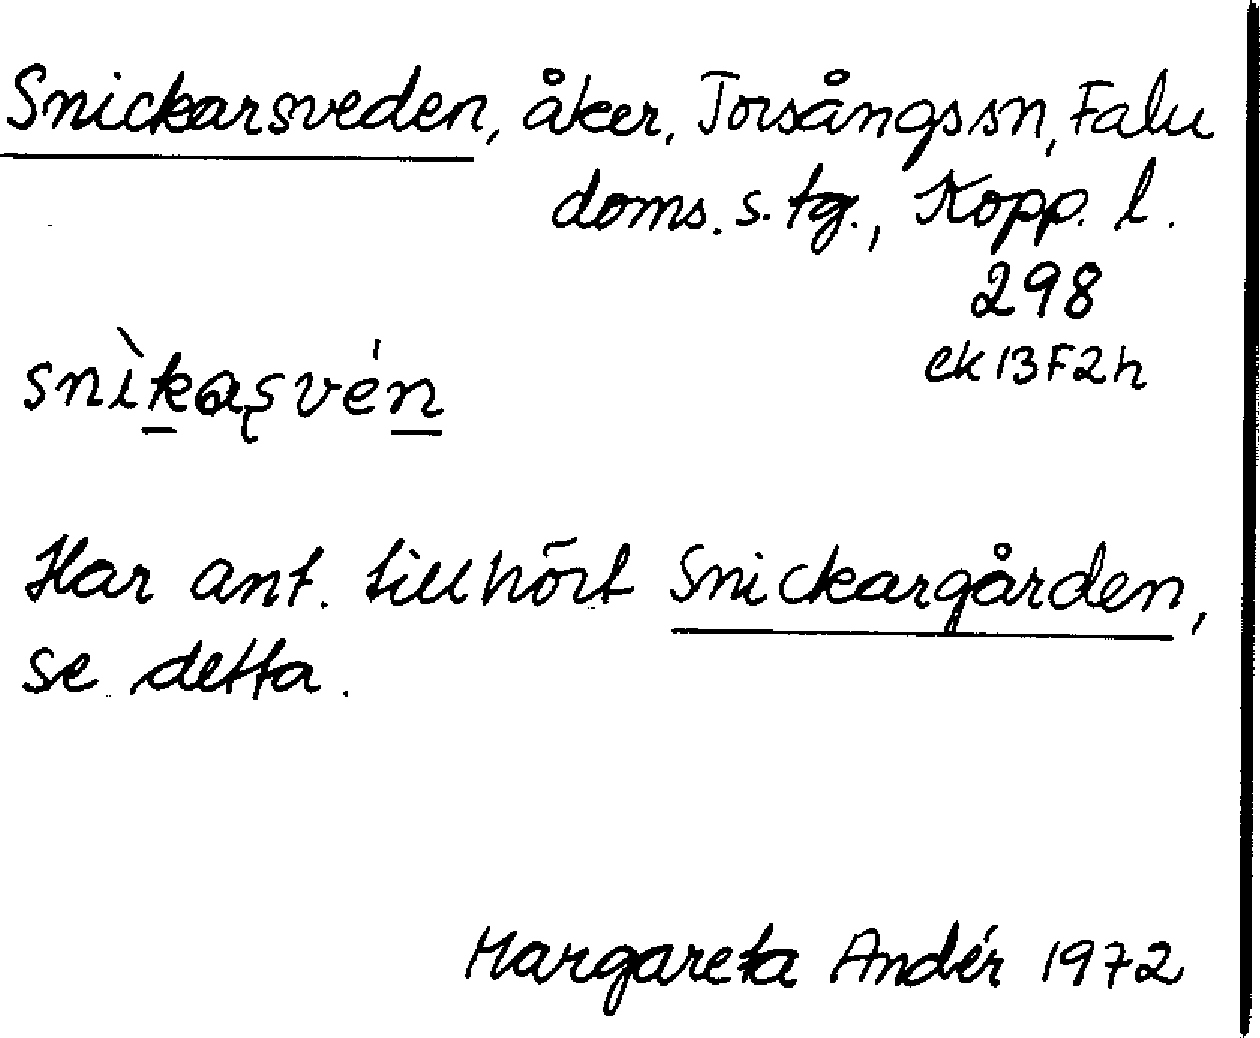 Snickarsveden, åker, Torsångs sn, Falu
doms. s. tg., Kopp. l.
298
ek 13F2h
snìkaʂvén
Har ant. tillhört Snickargården,
se detta.
Margareta Andér 1972